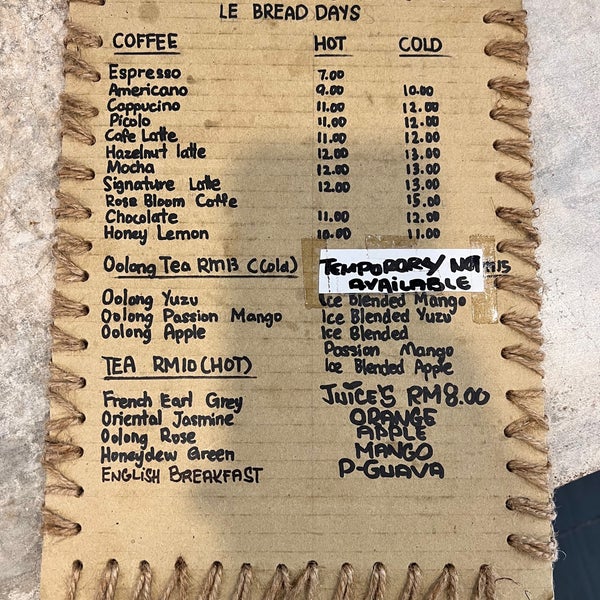 LE BREAD DAYS
COFFEE HOT COLD
Espresso 7.00
Americano 9.00 10.00
Cappucino 11.00 12.00
Picolo 11.00 12.00
Cafe Latte 11.00 12.00
Hazelnut latte 12.00 13.00
Mocha 12.00 13.00
Signature Latte 12.00 13.00
Rose Bloom Coffe 15.00
Chocolate 11.00 12.00
Honey Lemon 10.00 11.00
Oolong Tea RM13 (Cold)
Oolong Yuzu
Oolong Passion Mango
Oolong Apple
TEA RM10 (HOT)
French Earl Grey
Oriental Jasmine
Oolong Rose
Honeydew Green
ENGLISH BREAKFAST
TEMPORORY NOT
AVAILABLE
Ice Blended Mango
Ice Blended Yuzu
Ice Blended
Passion Mango
Ice Blended Apple
JUICE'S RM8.00
ORANGE
APPLE
MANGO
P-GUAVA